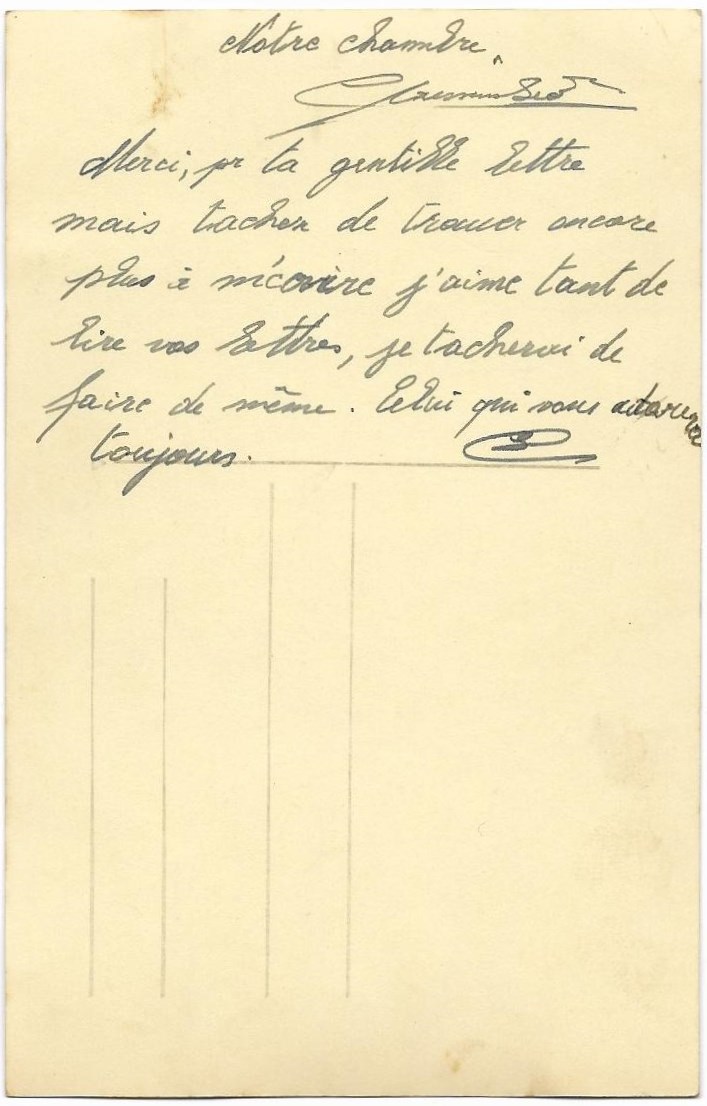 Nôtre chambre
Merci, pr ta gentille lettre
mais tacher de trouver encore
plus à m'écrire j'aime tant de
lire vos lettres, je tacherai de
faire de même. Celui qui vous adorera
toujours.